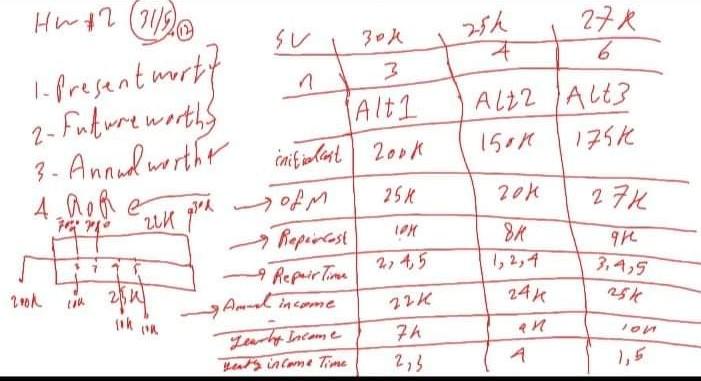 Hw #2 31/5
1- Present worth
2- Future worth
3- Annual worth
4 RoR
SV 30k 25k 27k
n 3 4 6
Alt1 Alt2 Alt3
initial cost 200k 150k 175k
O&M 25k 20k 27k
Repair Cost 10k 8k 9k
Repair Time 2, 4, 5 1, 2, 4 3, 4, 5
Annual income 22k 24k 25k
Yearly Income 7k 10k
Yearly income Time 2, 3 4 1, 5
22k 30k
200k 10k 25k
10k 10k